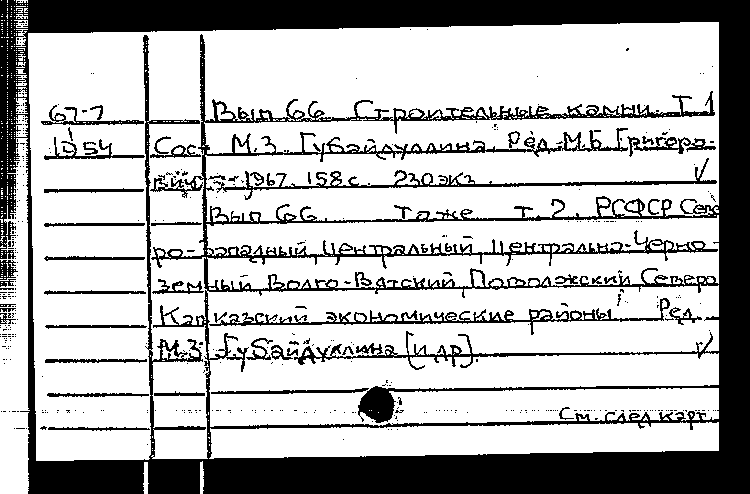 67-7 Вып 66 Строительные камни. Т 1
1954 Сост М.З. Губайдуллина. Ред. М.Б Григоро-
вича - 1967. 158 с. 230 экз.
Вып 66. То же Т. 2. РСФСР Севе
ро-Западный, Центральный, Центрально-Черно-
земный, Волго-Вятский, Поволжский, Северо
Кавказский экономические районы Ред.
М.З. Губайдуллина [и др].
См. след карт.